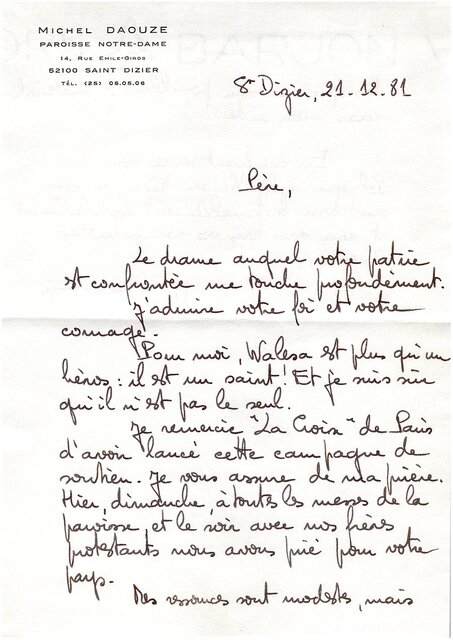 MICHEL DAOUZE
PAROISSE NOTRE-DAME
14, RUE EMILE-GIROS
52100 SAINT DIZIER
TÉL. (25) 05.05.06
St Dizier, 21.12.81
Père,
Le drame auquel votre patrie
est confrontée me touche profondément.
J'admire votre foi et votre
courage.
Pour moi, Walesa est plus qu'un
héros : il est un saint ! Et je suis sûr
qu'il n'est pas le seul.
Je remercie "La Croix" de Paris
d'avoir lancé cette campagne de
soutien. Je vous assure de ma prière.
Hier, dimanche, à toutes les messes de la
paroisse, et le soir avec nos frères
protestants nous avons prié pour votre
pays.
Mes ressources sont modestes, mais